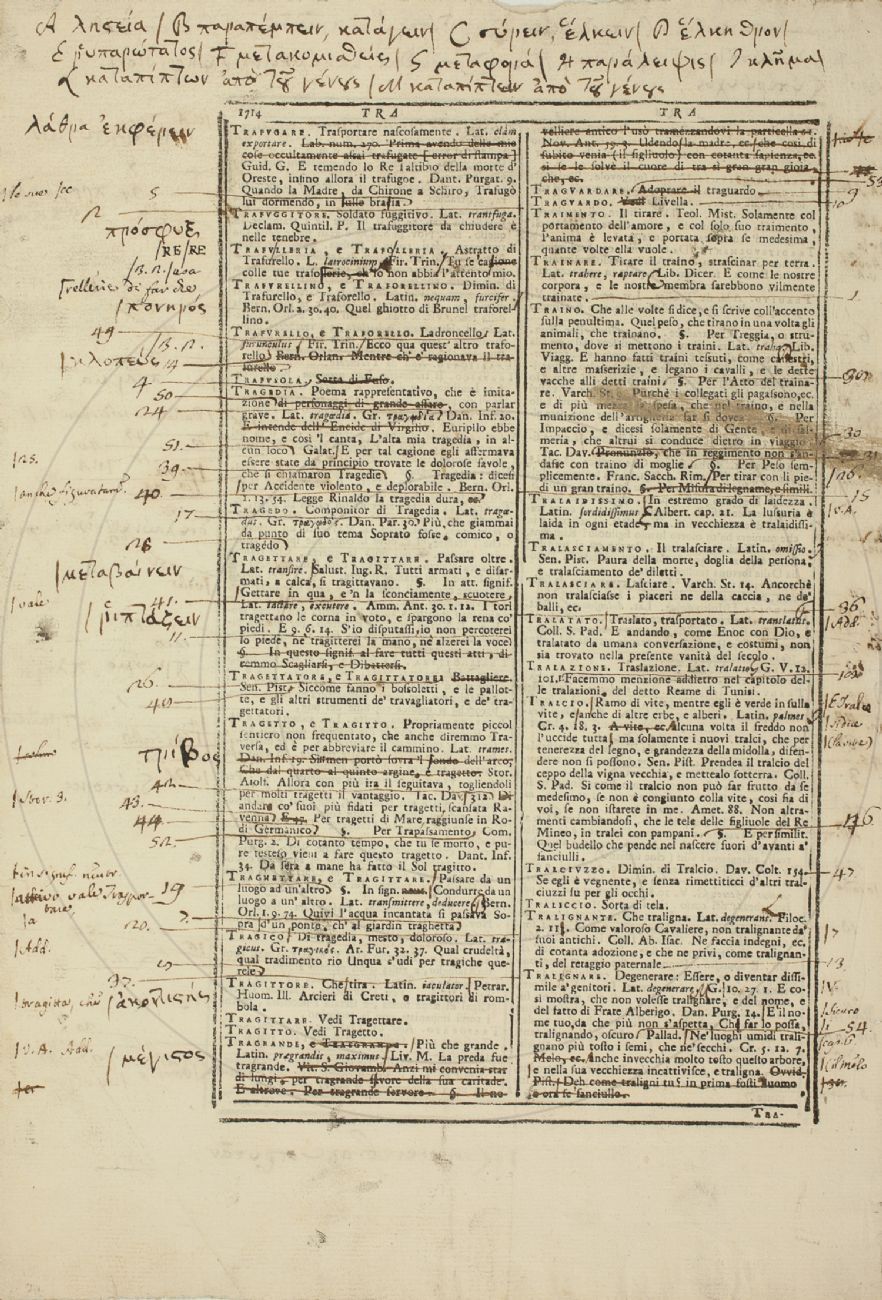 A λῃστεία / B παραπέμπειν, κατάγειν / C σύρειν, ἕλκων / D ἕλκηθρον /
μετακομισθείς / G μεταφορά / H παράλειψις / κλῆμα /
καταπίπτων ἀπὸ τοῦ γένους / M καταπίπτειν ἀπὸ τοῦ γένους
1714 TRA TRA
λάθρα ἐκφέρειν
TRAFUGARE. Trasportare nascosamente. Lat. clám
exportare. Lab. num. 290. Prima avendo delle mie
cose occultamente assai trafugate [error di stampa]
Guid. G. E temendo lo Re l'altibio della morte d'
Oreste, infino allora il trafugoe. Dant. Purgat. 9.
Quando la Madre, da Chirone a Schiro, Trafugò
lui dormendo, in sulle brasia.
5
2
πρόσφυξ
TRAFUGGITORE. Soldato fuggitivo. Lat. transfuga.
Declam. Quintil. P. Il trafuggitore da chiudere è
nelle tenebre.
RE/RE
TRAFURELLERIA, e TRAFORELLERIA. Astratto di
Trafurello. L. latrocinium. Fir. Trin. Tu se cagione
colle tue traforerie, ch'io non abbia l'attento mio.
πονηρός
TRAFURELLINO, e TRAFORELLINO. Dimin. di
Trafurello, e Traforello. Latin. nequam, furcifer.
Bern. Orl. 2. 30. 40. Quel ghiotto di Brunel traforel-
lino.
49
TRAFURELLO, e TRAFORELLO. Ladroncello. Lat.
furunculus. Fir. Trin. Ecco qua quest'altro trafo-
rello. Bern. Orlan. Mentre ch'e' ragionava il tra-
forello.
4
TRAFUSOLA. Sorta di Fuso.
50
TRAGEDIA. Poema rappresentativo, che è imita-
zione di personaggi di grande affare, con parlar
grave. Lat. tragœdia. Gr. τραγῳδία. Dan. Inf. 20.
E intende dell'Eneide di Virgilio. Euripilo ebbe
nome, e così 'l canta, L'alta mia tragedia, in al-
cun loco. Galat. E per tal cagione egli affermava
essere state da principio trovate le dolorose favole,
che si chiamaron Tragedie. §. Tragedia: dicesi
per Accidente violento, e deplorabile. Bern. Orl.
1. 13. 54. Legge Rinaldo la tragedia dura, ec.
24
51.
39.
40.
17.
TRAGEDO. Componitor di Tragedia. Lat. tragœ-
dus. Gr. τραγῳδός. Dan. Par. 30. Più, che giammai
da punto di suo tema Soprato fosse, comico, o
tragedo.
28
μεταβαίνειν
TRAGETTARE, e TRAGITTARE. Passare oltre.
Lat. transire. Salust. Iug. R. Tutti armati, e disar-
mati, a calca, si tragittavano. §. In att. signif.
Gettare in qua, e 'n la sconciamente, scuotere.
Lat. iactare, excutere. Amm. Ant. 30. 1. 12. I tori
tragettano le corna in voto, e spargono la rena co'
piedi. E 9. 6. 14. S'io disputassi, io non percoterei
lo piede, nè tragitterei la mano, nè alzerei la voce.
§. In questo signif. al fare tutti questi atti, di-
remmo Scagliarsi, e Dibattersi.
vale
41.
ῥιπτάζειν
11.
26.
40
TRAGETTATORA, e TRAGETTATORE. Battagliere.
Sen. Pist. Siccome fanno i bossoletti, e le pallot-
te, e gli altri strumenti de' travagliatori, e de' tra-
gettatori.
τρίβος
TRAGETTO, e TRAGITTO. Propriamente piccol
sentiero non frequentato, che anche diremmo Tra-
versa, ed è per abbreviare il cammino. Lat. trames.
Dan. Inf. 19. Sì men portò sovra 'l fondo dell'arco,
Che dal quarto al quinto argine, è tragetto. Stor.
Aiolf. Allora con più ira il seguitava, togliendoli
per molti tragetti il vantaggio. Tac. Dav. 312. Di
andare co' suoi più fidati per tragetti, scansata Ra-
venna. E 47. Per tragetti di Mare raggiunse in Ro-
di Germanico. §. Per Trapassamento. Com.
Purg. 2. Di cotanto tempo, che tu se morto, e pu-
re testeso vieni a fare questo tragetto. Dant. Inf.
34. Da sera a mane ha fatto il Sol tragitto.
43.
44.
52.
TRAGHETTARE, e TRAGITTARE. Passare da un
luogo ad un'altro. §. In sign. Condurre da un
luogo a un' altro. Lat. transmittere, deducere. Bern.
Orl. 1. 9. 74. Quivi l'acqua incantata si passava So-
pra d'un ponte, ch'al giardin traghetta.
19
20.
Add.
TRAGICO. Di tragedia, mesto, doloroso. Lat. tra-
gicus. Gr. τραγικός. Ar. Fur. 32. 37. Qual crudeltà,
qual tradimento rio Unqua s'udì per tragiche que-
rele.
37.
ἀκοντιστής
TRAGITTORE. Che tira. Latin. iaculator. Petrar.
Huom. Ill. Arcieri di Creti, e tragittori di rom-
bola.
TRAGITTARE. Vedi Tragettare.
TRAGITTO. Vedi Tragetto.
V. A. Add.
μέγιστος
TRAGRANDE, e TRAGRANDA. Più che grande.
Latin. prægrandis, maximus. Liv. M. La preda fue
tragrande. Vit. S. Giovamb. Anzi mi convenia star
di lungi, per tragrande fervore della sua caritade.
E altrove. Per tragrande fervore. §. Il no-
velliere antico l'usò tramezzandovi la particella sì.
Nov. Ant. 59. 3. Udendo la madre, ec. che così di
subito venia [il figliuolo] con cotanta sapienza, ec.
sì le si solve il cuore di tra sì gran grap gioia,
che, ec.
TRAGUARDARE. Adoprare il traguardo.
TRAGUARDO. Vedi Livella.
53
9
10
TRAIMENTO. Il tirare. Teol. Mist. Solamente col
portamento dell'amore, e col solo suo traimento,
l'anima è levata, e portata sopra se medesima,
quante volte ella vuole.
TRAINARE. Tirare il traino, strascinar per terra.
Lat. trahere, raptare. Lib. Dicer. E come le nostre
corpora, e le nostre membra sarebbono vilmente
trainate.
TRAINO. Che alle volte si dice, e si scrive coll'accento
sulla penultima. Quel peso, che tirano in una volta gli
animali, che trainano. §. Per Treggia, o stru-
mento, dove si mettono i traini. Lat. traha. Lib.
Viagg. E hanno fatti traini tessuti, come canestri,
e altre masserizie, e legano i cavalli, e le dette
vacche alli detti traini. §. Per l'Atto del traina-
re. Varch. St. Purchè i collegati gli pagassono, ec.
e di più mezza la spesa, che nel traino, e nella
munizione dell'artiglieria far si dovea. §. Per
Impaccio, e dicesi solamente di Gente, e di sal-
meria, che altrui si conduce dietro in viaggio.
Tac. Dav. Pronunziò, che in reggimento non an-
dasse con traino di moglie. §. Per Peso sem-
plicemente. Franc. Sacch. Rim. Per tirar con li pie-
di un gran traino. §. Per Misura di legname, e simili.
30
15
V.A.
TRALAIDISSIMO. In estremo grado di laidezza.
Latin. fordidissimus. Albert. cap. 21. La lussuria è
laida in ogni etade, ma in vecchiezza è tralaidissi-
ma.
TRALASCIAMENTO. Il tralasciare. Latin. omissio.
Sen. Pist. Paura della morte, doglia della persona,
e tralasciamento de' diletti.
TRALASCIARE. Lasciare. Varch. St. 14. Ancorchè
non tralasciasse i piaceri nè della caccia, nè de'
balli, ec.
36
Add.
TRALATATO. Traslato, trasportato. Lat. translatus.
Coll. S. Pad. E andando, come Enoc con Dio, e
tralatato da umana conversazione, e costumi, non
sia trovato nella presente vanità del secolo.
TRALAZIONE. Traslazione. Lat. tralatio. G. V. 12.
101. 1. Facemmo menzione addietro nel capitolo del-
le tralazioni, del detto Reame di Tunisi.
TRALCIO. Ramo di vite, mentre egli è verde in sulla
vite, e anche di altre erbe, e alberi. Latin. palmes.
Cr. 4. 18. 3. A vite, ec. Alcuna volta il freddo non
l'uccide tutta, ma solamente i nuovi tralci, che per
tenerezza del legno, e grandezza della midolla, difen-
dere non si possono. Sen. Pist. Prendea il tralcio del
ceppo della vigna vecchia, e mettealo sotterra. Coll.
S. Pad. Sì come il tralcio non può far frutto da se
medesimo, se non è congiunto colla vite, così sia di
voi, se non istarete in me. Amet. 88. Non altra-
menti cambiandosi, che le tele delle figliuole del Re
Mineo, in tralci con pampani. §. E per similit.
Quel budello che pende nel nascere fuori d'avanti a'
fanciulli.
TRALCIUZZO. Dimin. di Tralcio. Dav. Colt. 154.
Se egli è vegnente, e senza rimettiticci d'altri tral-
ciuzzi su per gli occhi.
47
TRALICCIO. Sorta di tela.
TRALIGNANTE. Che traligna. Lat. degenerans. Filoc.
2. 111. Come valoroso Cavaliere, non tralignante da'
suoi antichi. Coll. Ab. Isac. Ne faccia indegni, ec.
di cotanta adozione, e che ne privi, come tralignan-
ti, del retaggio paternale.
13
TRALIGNARE. Degenerare: Essere, o diventar dissi-
mile a' genitori. Lat. degenerare. G. 10. 27. 1. E co-
si mostra, che non volesse tralignare, e del nome, e
del fatto di Frate Alberigo. Dan. Purg. 14. E 'l no-
me tuo, da che più non s'aspetta, Chi far lo possa,
tralignando, oscuro. Pallad. Ne' luoghi umidi trali-
gnano più tosto i semi, che ne' secchi. Cr. 5. 12. 7.
Melo, ec. Anche invecchia molto tosto quest'arbore,
e nella sua vecchiezza incattivisce, e traligna. Ovvid.
Pist. Deh come traligni tu! in prima fosti uomo
e ora se' fanciullo.
54.
TRA-